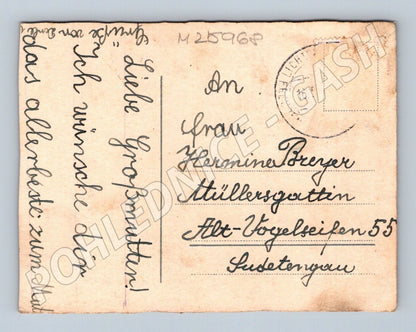 M25968
An
Frau
Hermine Breyer
Müllersgattin
Alt-Vogelseifen 55
Sudetengau
Liebe Großmutter!
Ich wünsche dir
das allerbeste zum
Grüße von
POHLEDNICE - GASH